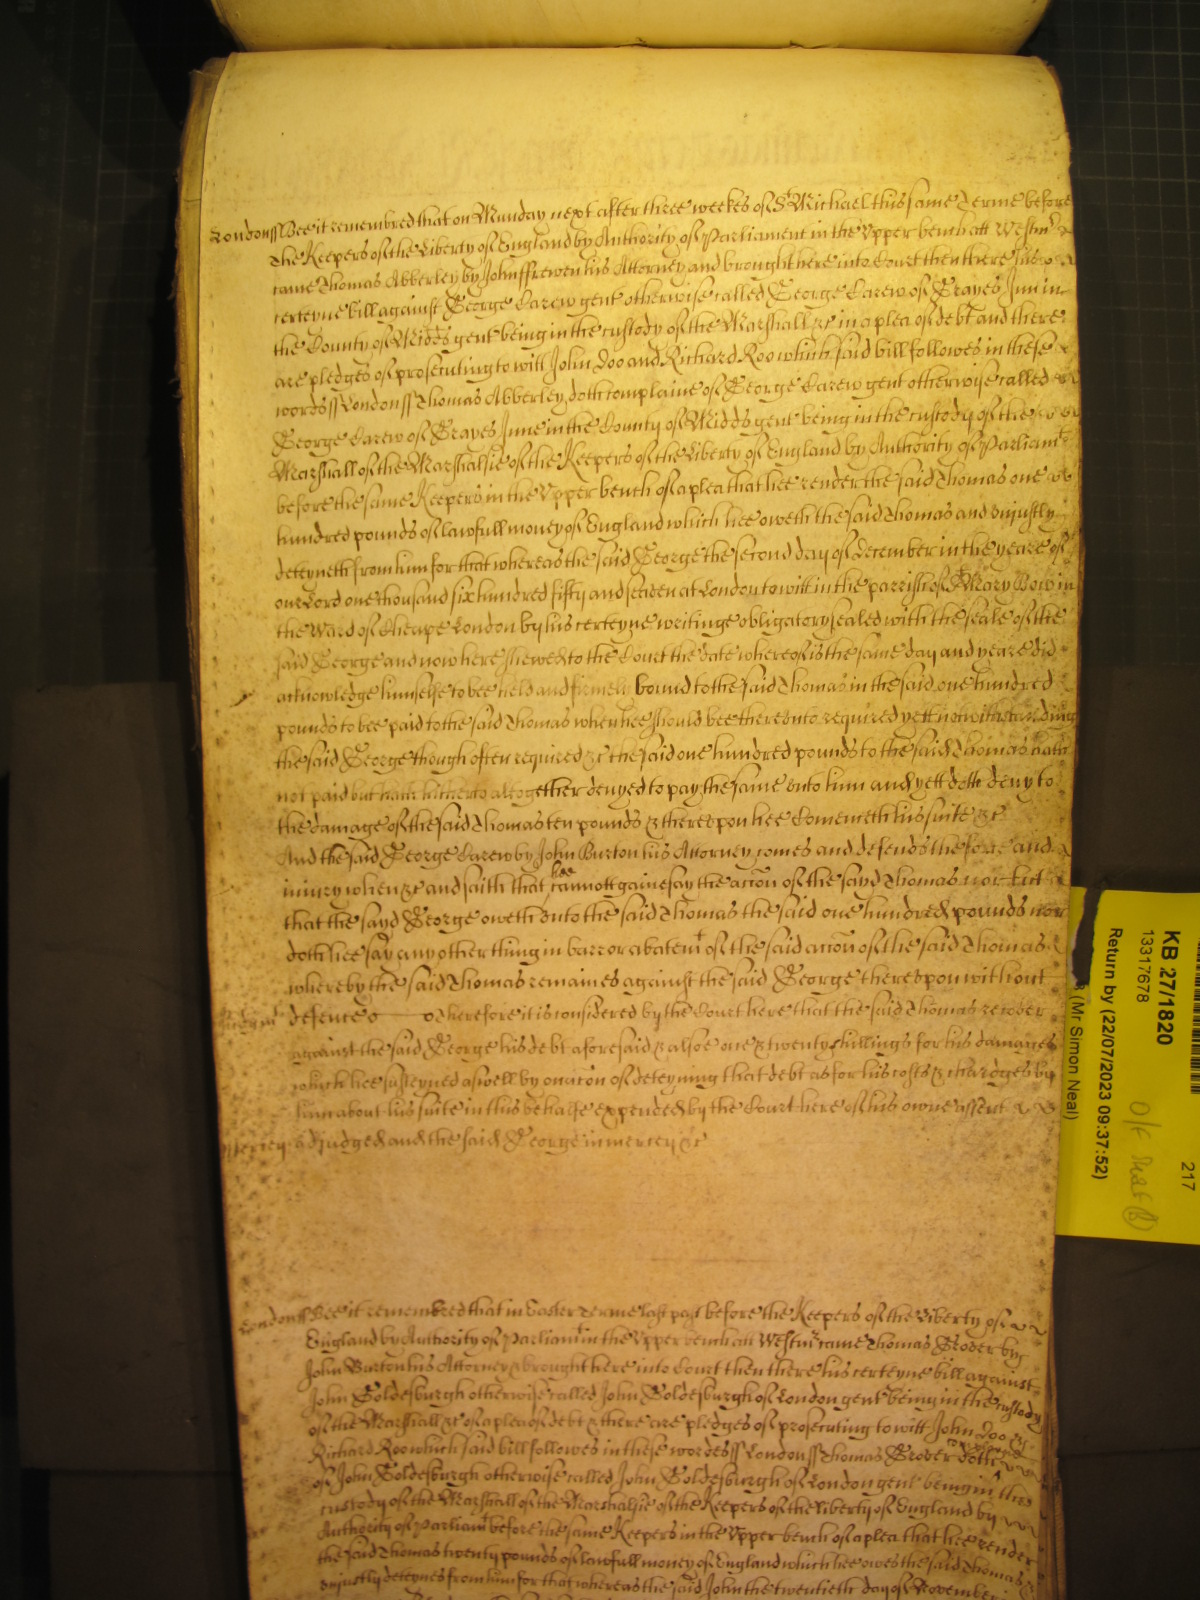 Londonss Bee it remembred that on Munday next after three weekes of St Michael this same Terme before
the Keepers of the Liberty of England by Authority of Parliament in the Upper bench att Westmr
came Thomas Abberley by John Frewen his Attorney and brought here into Court then there his
certeyne bill against George Carew gent otherwise called George Carew of Grayes Inn in
the County of Midds gent being in the custody of the Marshall &c in a plea of debt and there
are pledges of prosecuting to witt John Doo and Richard Roo which said bill followes in these
words ss Londonss Thomas Abberley doth complaine of George Carew gent otherwise called
George Carew of Grayes Inne in the County of Midds gent being in the custody of the
Marshall of the Marshalsie of the Keepers of the Liberty of England by Authority of Parliamt
before the same Keepers in the Upper bench of a plea that hee render the said Thomas one
hundred pounds of lawfull money of England which hee oweth the said Thomas and unjustly
deteyneth from him for that whereas the said George the second day of December in the yeare of
our Lord one thousand six hundred fifty and seaven at London to witt in the parrish of St Mary Bow in
the Ward of Cheape London by his certeyne writinge obligatory sealed with the seale of the
said George and now here shewed to the Court the date whereof is the same day and yeare did
acknowledge himselfe to bee held and firmely bound to the said Thomas in the said one hundred
pounds to bee paid to the said Thomas when hee should bee thereunto required yett notwithstanding
the said George though often required &c the said one hundred pounds to the said Thomas hath
not paid but hath hitherto altogether denyed to pay the same unto him and yett doth deny to
the damage of the said Thomas ten pounds & thereupon hee bringeth his suite &c
And the said George Carew by John Burton his Attorney comes and defends the force and
injury when &c and saith that hee cannott gainesay the accon of the sayd Thomas nor but
that the sayd George oweth unto the said Thomas the said one hundred pounds nor
doth hee say any other thing in barr or abatemt of the said accon of the said Thomas
whereby the said Thomas remaines against the said George thereupon without
defence Therefore it is considered by the Court here that the said Thomas recover
against the said George his debt aforesaid & alsoe one & twenty shillings for his damages
which hee susteyned aswell by occacon of deteyning that debt as for his costs & chardges by
him about his suite in this behalfe expended by the Court here of his owne assent
Mercy adjudged and the said George in mercy &c
Londonss Bee it remembred that in Easter Terme last past before the Keepers of the Liberty of
England by Authority of Parliamt in the Upper bench att Westmr came Thomas Grover by
John Burton his Attorney & brought here into Court then there his certeyne bill against
John Goldesburgh otherwise called John Goldesburgh of London gent being in the custody
of the Marshall &c of a plea of debt & there are pledges of prosecuting to witt John Doo &
Richard Roo which said bill followes in these wordes ss Londonss Thomas Grover doth complaine
of John Goldesburgh otherwise called John Goldesburgh of London gent being in the
custody of the Marshall of the Marshalsie of the Keepers of the liberty of England by
Authority of Parliamt before the same Keepers in the Upper bench of a plea that hee render
the said Thomas twenty pounds of lawfull money of England which hee owes the said Thomas &
unjustly deteynes from him for that whereas the said John the twentieth day of November
KB 27/1820
13317678
217
(Mr Simon Neal)
Return by (22/07/2023 09:37:52)